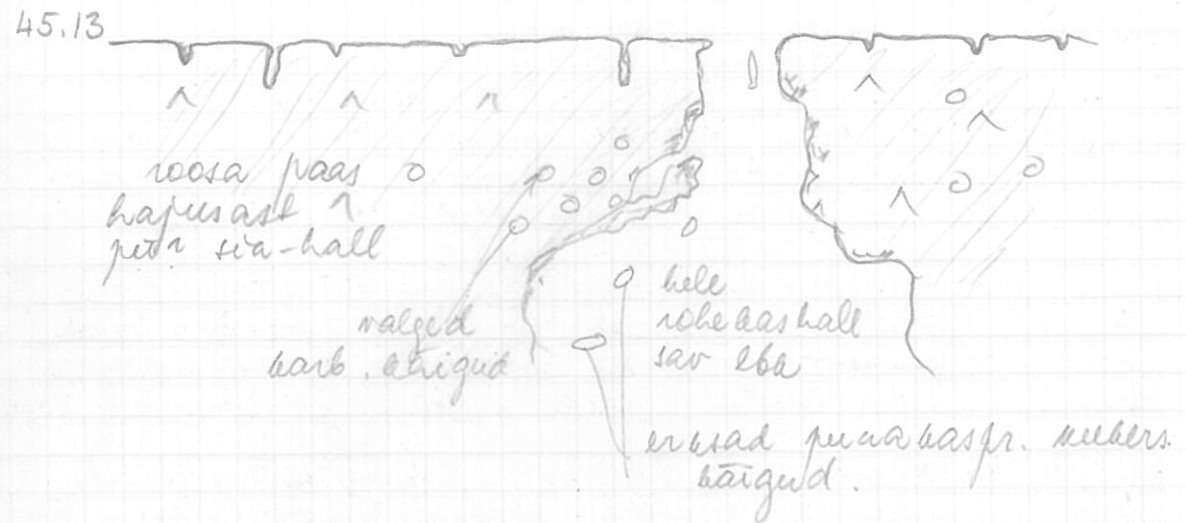 45.13
roosa paas
hajusast
hall
valged
karb. käigud
hele
rohekashall
sav
erksad punakaspr.
käigud.